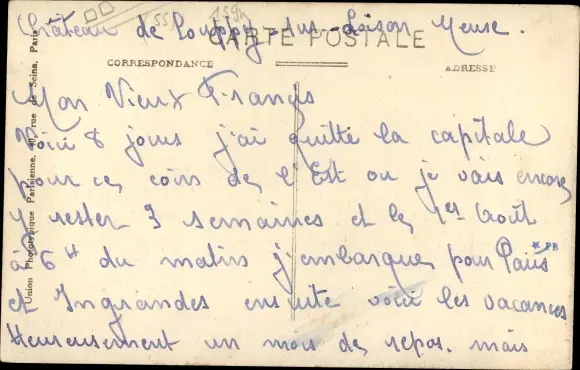 Château de Louppy-sus-Loison Meuse.
CARTE POSTALE
CORRESPONDANCE
ADRESSE
Mon Vieux Francis
Voici 8 jours j'ai quitté la capitale
pour ces coins de l'Est ou je vais encore
y rester 3 semaines et le 1er Août
à 6H du matin j'embarque pour Paris
et Ingrandes ensuite voici les vacances
Heureusement un mois de repos. mais
Union Phototypique Parisienne, rue de Seine, Paris